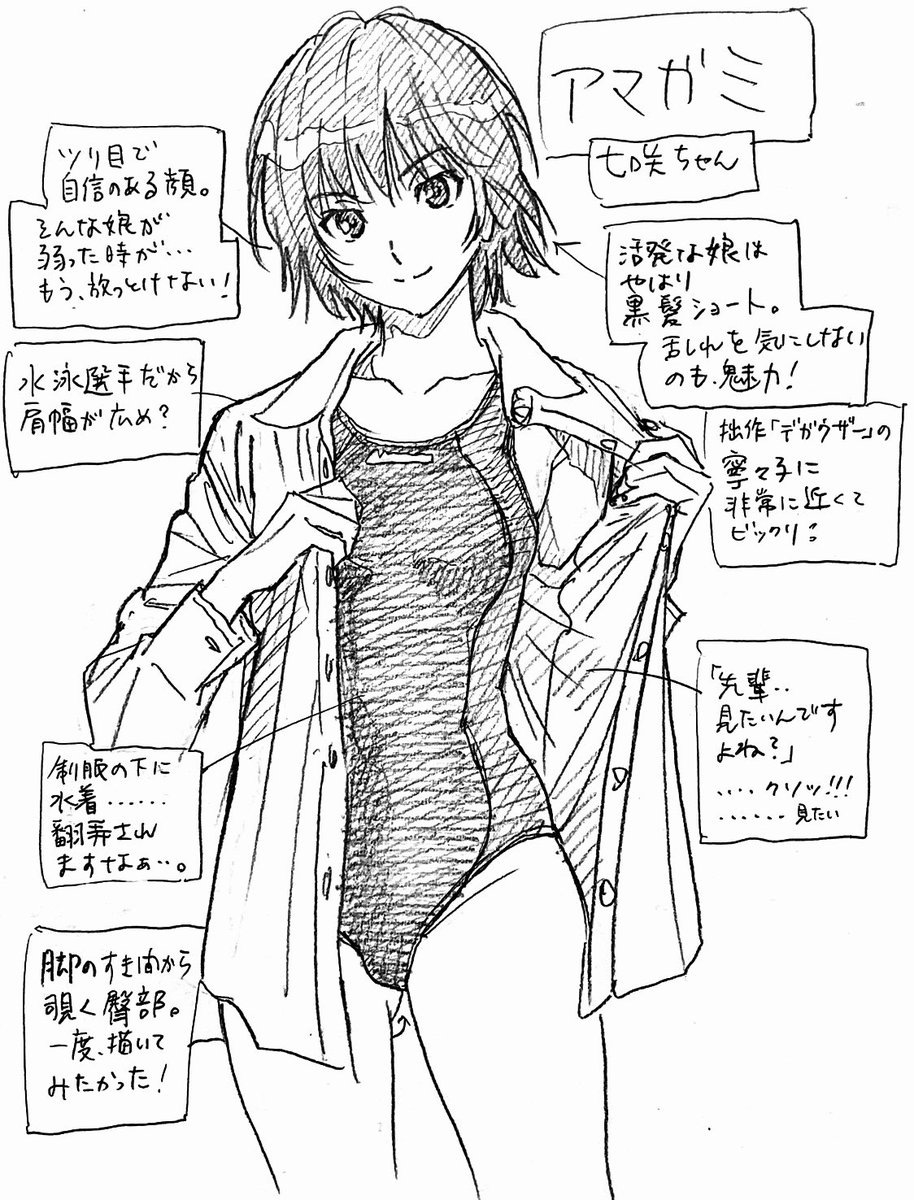 アマガミ
七咲ちゃん
ツリ目で
自信のある顔。
そんな娘が
弱った時が…
もう、放っとけない!
活発な娘は
やはり
黒髪ショート。
乱れを気にしない
のも、魅力!
水泳選手だから
肩幅が広め?
拙作「デガウザー」の
寧々子に
非常に近くて
ビックリ!
「先輩‥
見たいんです
よね?」
‥‥クソッ!!!
‥‥‥見たい
制服の下に
水着……
翻弄され
ますなぁ…。
脚のすき間から
覗く臀部。
一度、描いて
みたかった!